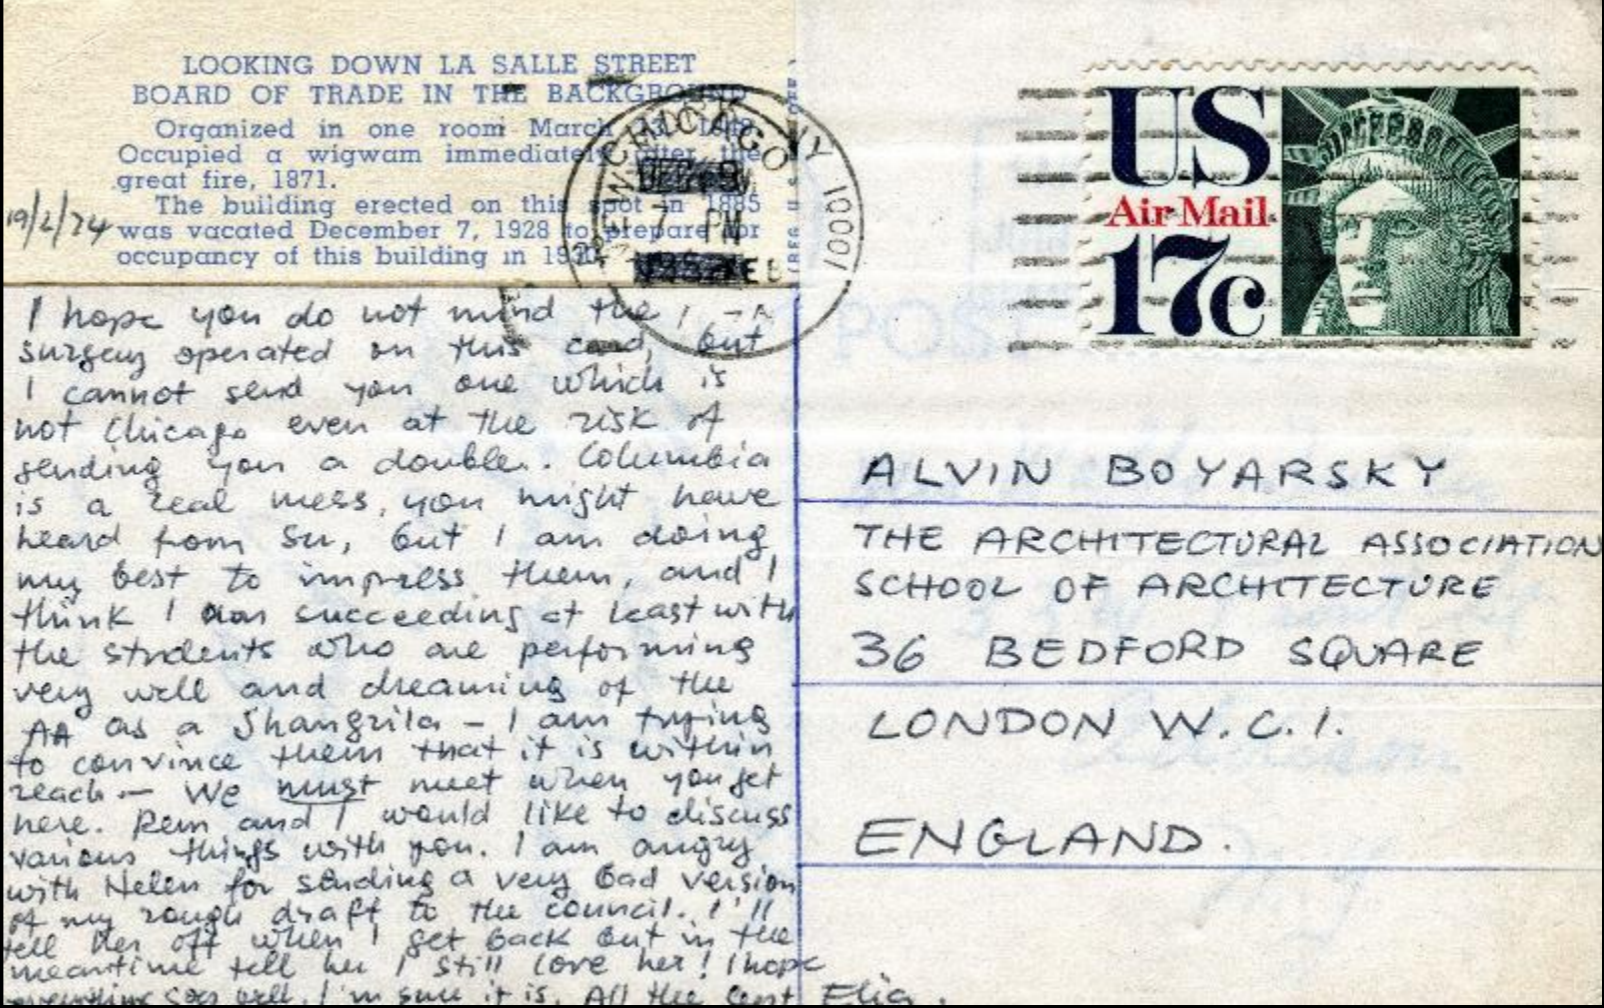 LOOKING DOWN LA SALLE STREET
BOARD OF TRADE IN THE BACKGROUND
Organized in one room March 1848.
Occupied a wigwam immediately after the
great fire, 1871.
The building erected on this spot in 1885
was vacated December 7, 1928 to prepare for
occupancy of this building in 1930.
19/2/74
CHICAGO
NY 10001
7 PM
FEB
US
Air Mail
17c
POST
I hope you do not mind the
surgery operated on this card, but
I cannot send you one which is
not Chicago even at the risk of
sending you a double. Columbia
is a real mess, you might have
heard from Su, but I am doing
my best to impress them, and I
think I am succeeding at least with
the students who are performing
very well and dreaming of the
AA as a Shangrila – I am trying
to convince them that it is within
reach – We must meet when you get
here. Rem and I would like to discuss
various things with you. I am angry
with Helen for sending a very bad version
of my rough draft to the council. I'll
tell her off when I get back but in the
meantime tell her I still love her! I hope
everything goes well. I'm sure it is. All the best Elia.
ALVIN BOYARSKY
THE ARCHITECTURAL ASSOCIATION
SCHOOL OF ARCHITECTURE
36 BEDFORD SQUARE
LONDON W.C.1.
ENGLAND.